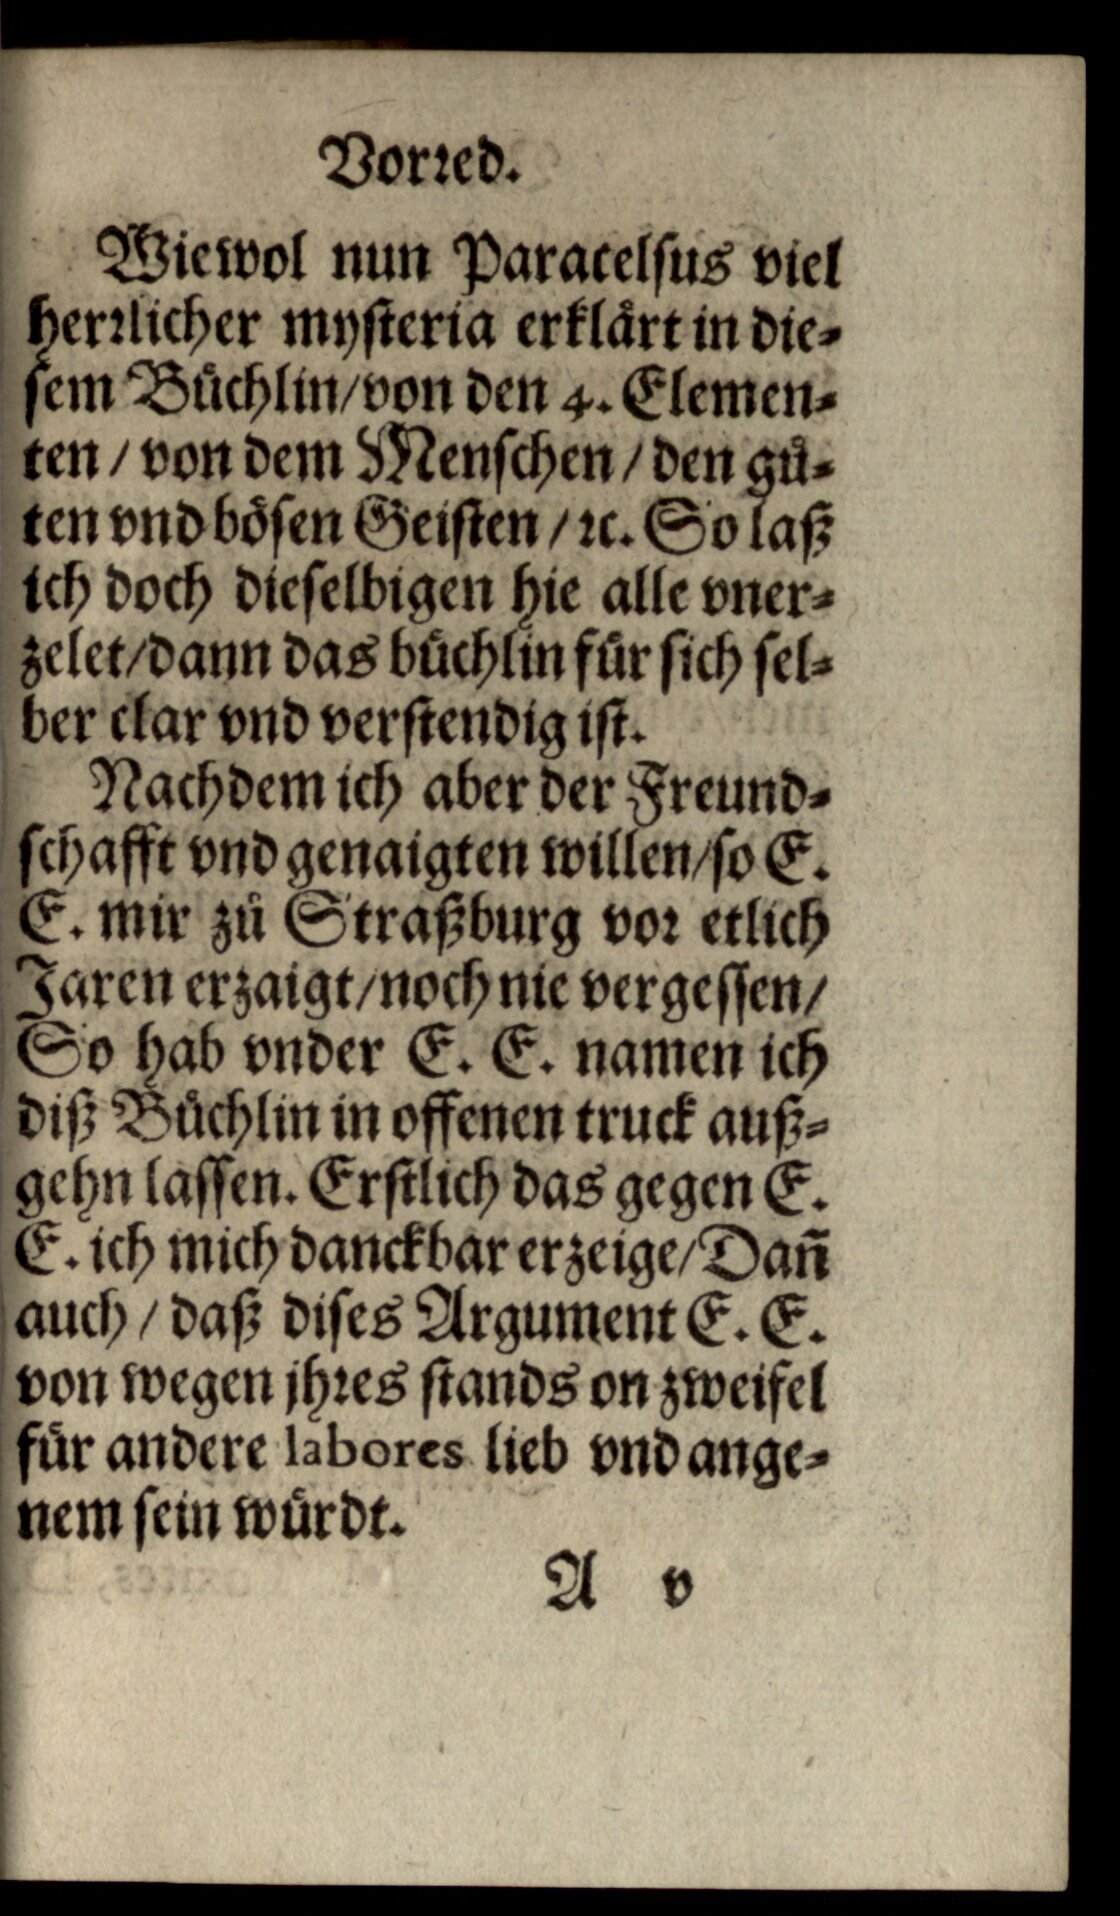 Vorꝛed.
Wiewol nun Paracelsus viel
herꝛlicher mysteria erklaͤrt in die⸗
sem Buͤchlin/von den 4. Elemen⸗
ten / von dem Menschen / den guͦ⸗
ten vnd boͤsen Geisten / ꝛc. So laß
ich doch dieselbigen hie alle vner⸗
zelet/dann das buͤchlin fuͤr sich sel⸗
ber clar vnd verstendig ist.
Nachdem ich aber der Freund⸗
schafft vnd genaigten willen/so E.
E. mir zuͦ Straßburg voꝛ etlich
Jaren erzaigt/noch nie vergessen/
So hab vnder E. E. namen ich
diß Buͤchlin in offenen truck auß⸗
gehn lassen. Erstlich das gegen E.
E. ich mich danckbar erzeige/Dañ
auch / daß dises Argument E. E.
von wegen jhꝛes stands on zweifel
fuͤr andere labores lieb vnd ange⸗
nem sein wuͤrdt.
A v